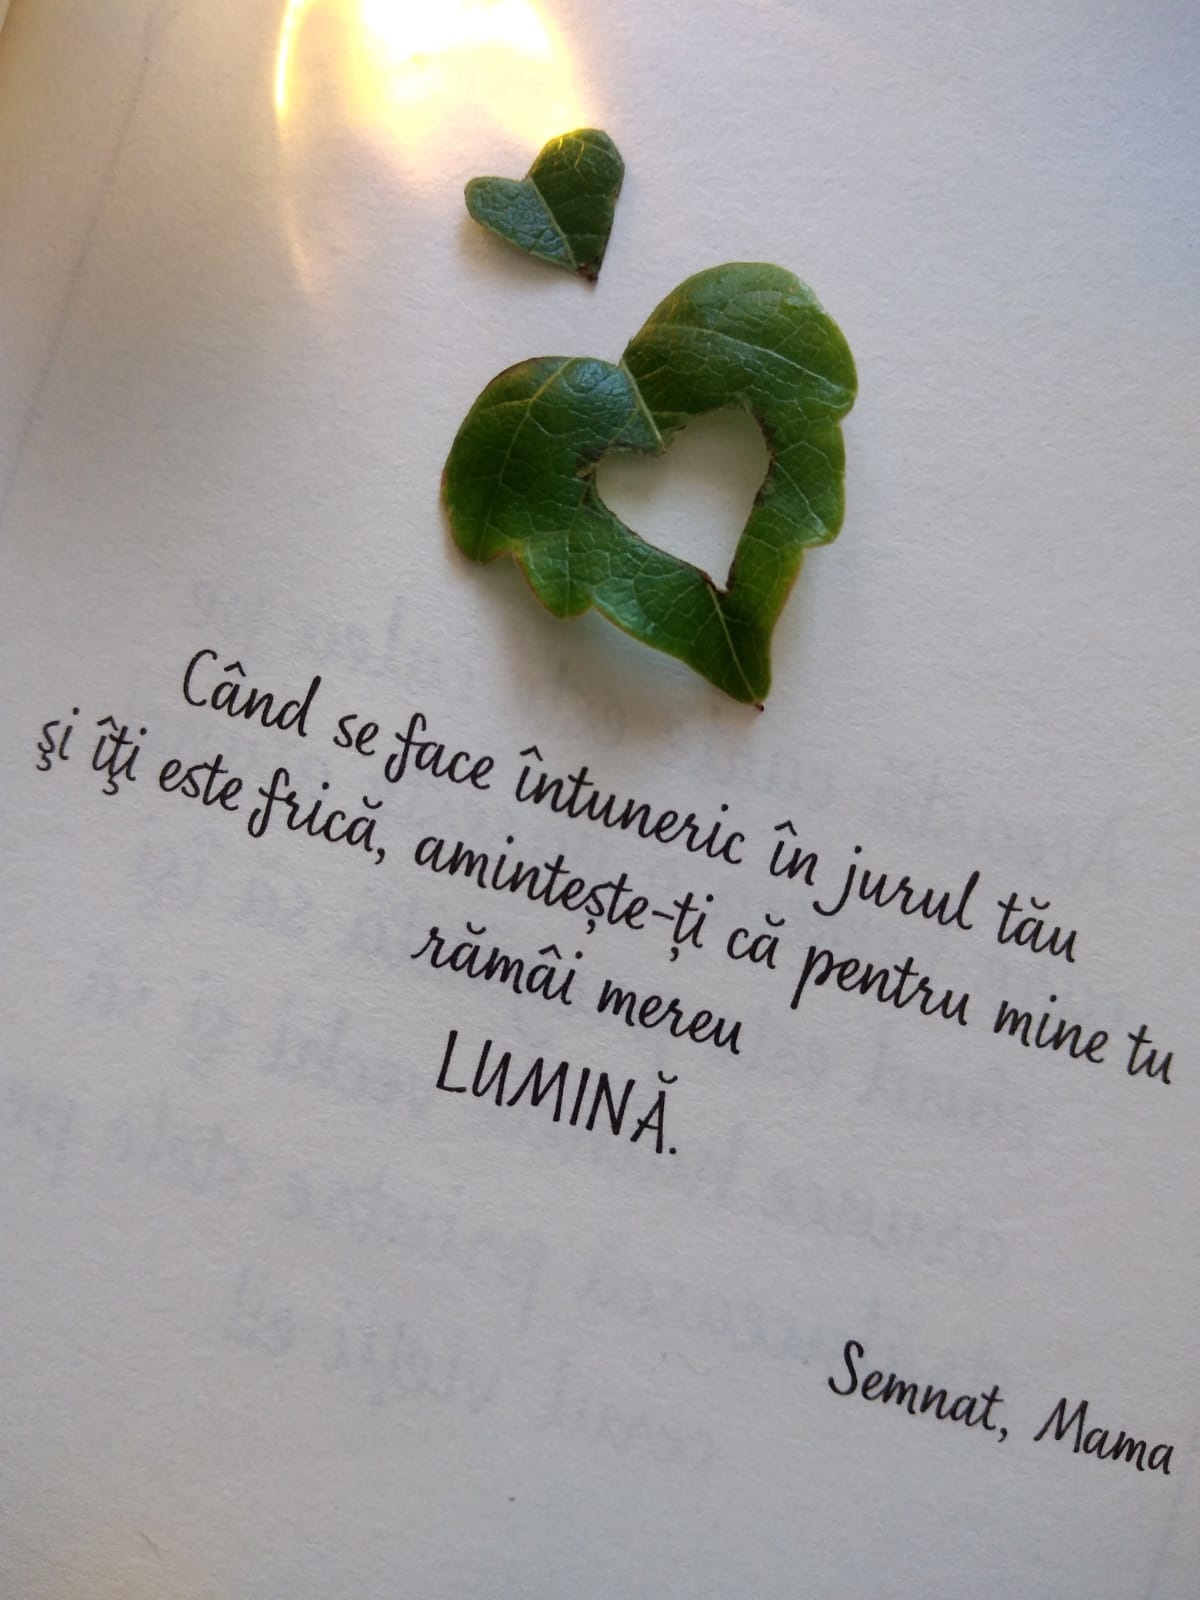 Când se face întuneric în jurul tău
şi îţi este frică, aminteşte-ți că pentru mine tu
rămâi mereu
LUMINĂ.
Semnat, Mama